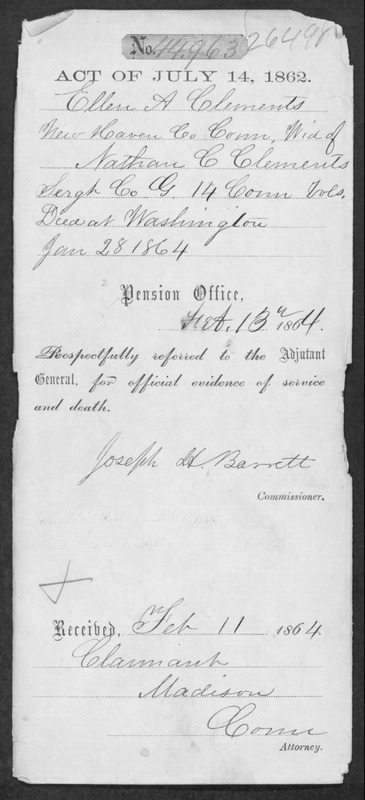 No. 44,963 26498
ACT OF JULY 14, 1862.
Ellen A Clements
New Haven Co Conn, Wid of
Nathan C Clements
Sergt Co G. 14 Conn Vols,
Died at Washington
Jan 28 1864
Pension Office,
Feb. 13 1864.
Respectfully referred to the Adjutant
General, for official evidence of service
and death.
Joseph H. Barrett
Commissioner.
Received, Feb 11 1864
Claimant
Madison
Conn
Attorney.